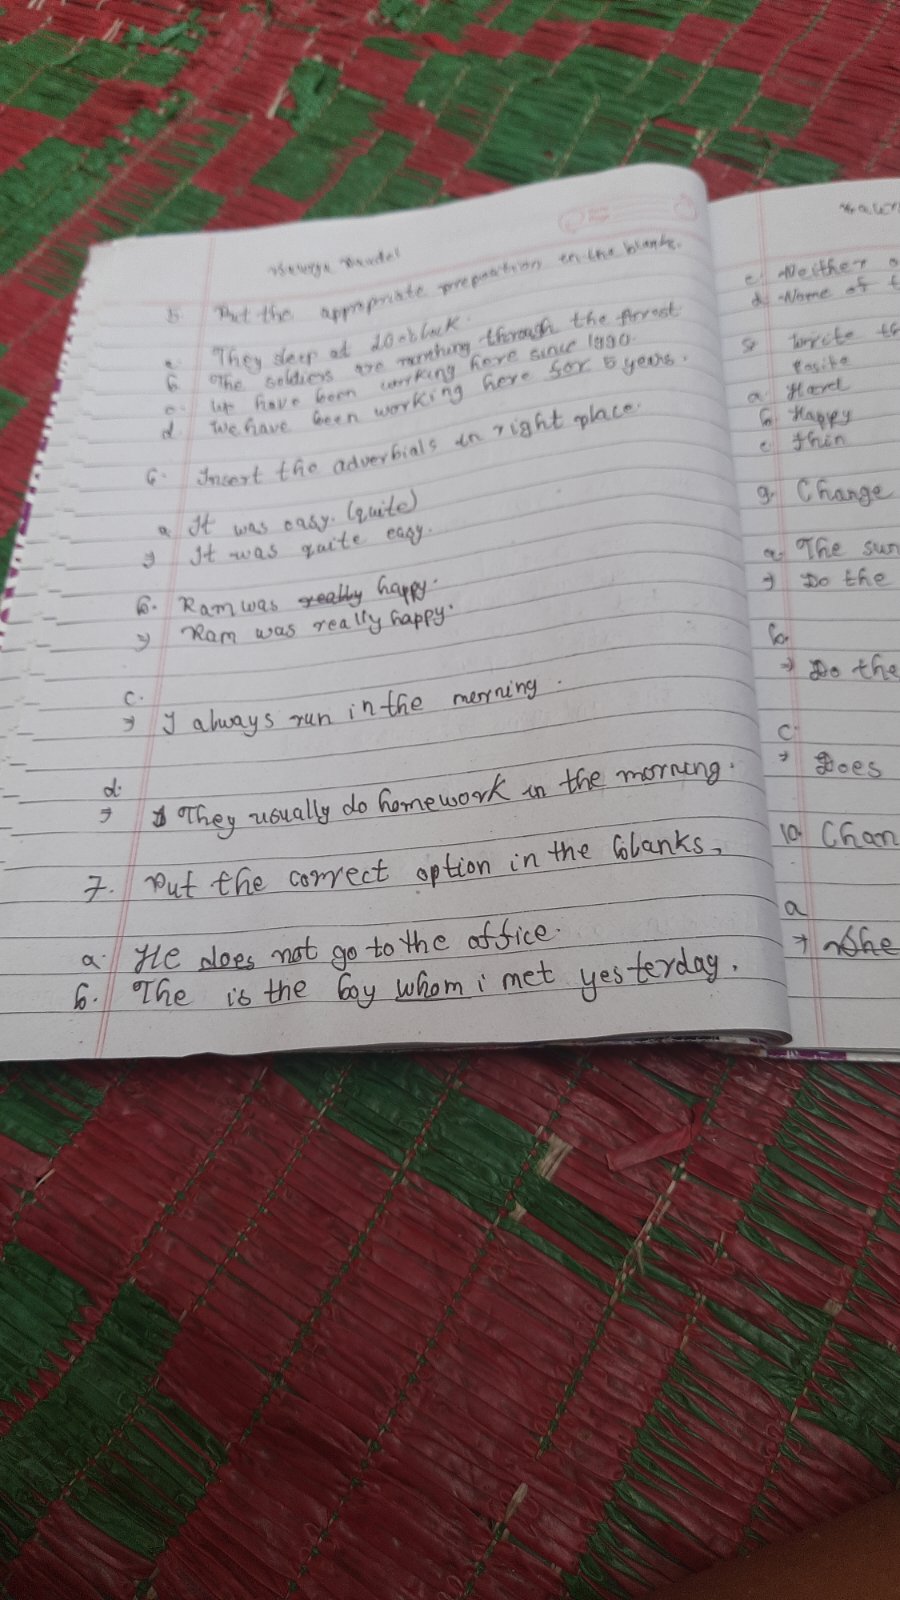 5. Put the appropriate preposition in the blanks.
a. They sleep at 10 o
b. The soldiers are through the forest
c. We have been working here since 1990.
d. We have been working here for 5 years.
6. Insert the adverbials in right place.
a. It was easy. (quite)
→ It was quite easy.
b. Ram was really happy.
→ Ram was really happy.
c.
→ I always run in the morning.
d.
→ They usually do homework in the morning.
7. Put the correct option in the blanks.
a. He does not go to the office.
b. The is the boy whom i met yesterday.
c. Neither
d. None of t
8. Write th
posite
a. Hard
b. Happy
c. thin
9. Change
a. The sun
→ Do the
b.
→ Do the
c.
→ Does
10. Chan
a
→ She